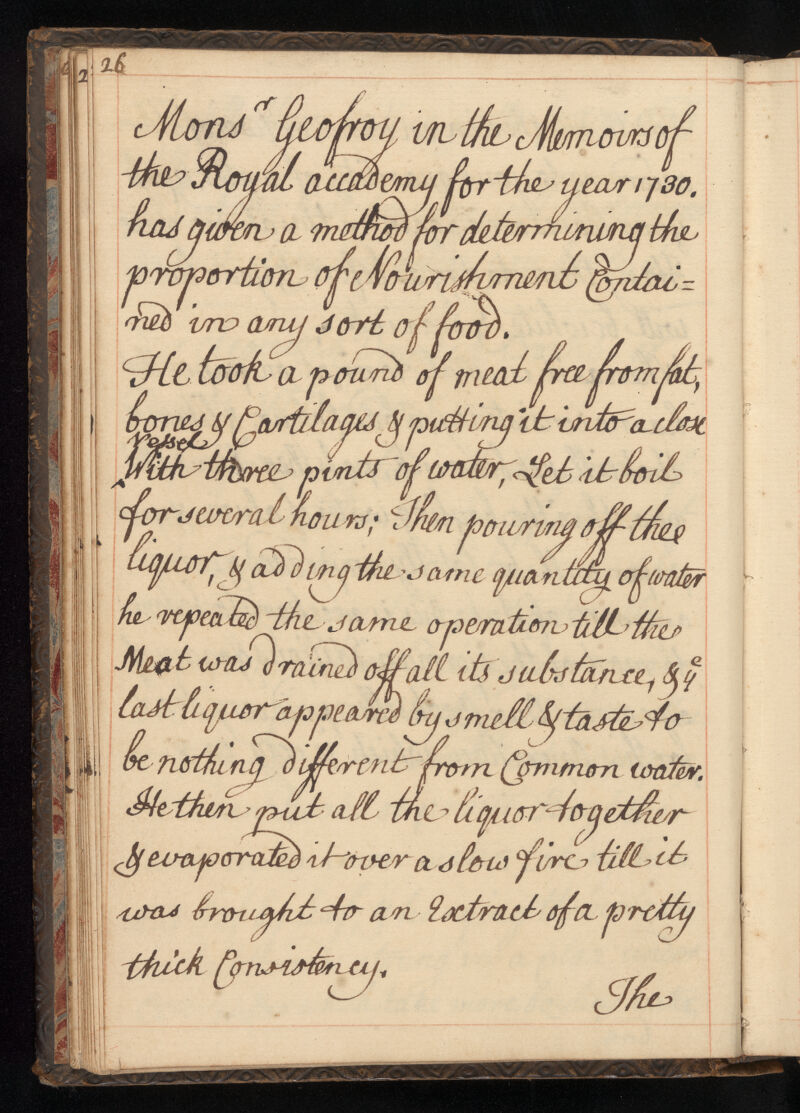 26
Mons.r Geofroy in the Memoirs of
the Royal accademy for the year 1730.
has given a method for determining the
proportion of Nourishment Contai=
ned in any sort of food.
He took a pound of meat free from fat,
bones & Cartilages & putting it into a close
Vessel
With three pints of water, Let it boil
for several hours; Then pouring off the
liquor, & adding the same quantity of water
he repeated the same operation till the
Meat was drained off all its substance, & ye
last liquor appeared by smell & taste to
be nothing different from Common water.
He then put all the liquor together
& evaporated it over a slow fire till it
was brought to an Extract of a pretty
thick Consistency.
The